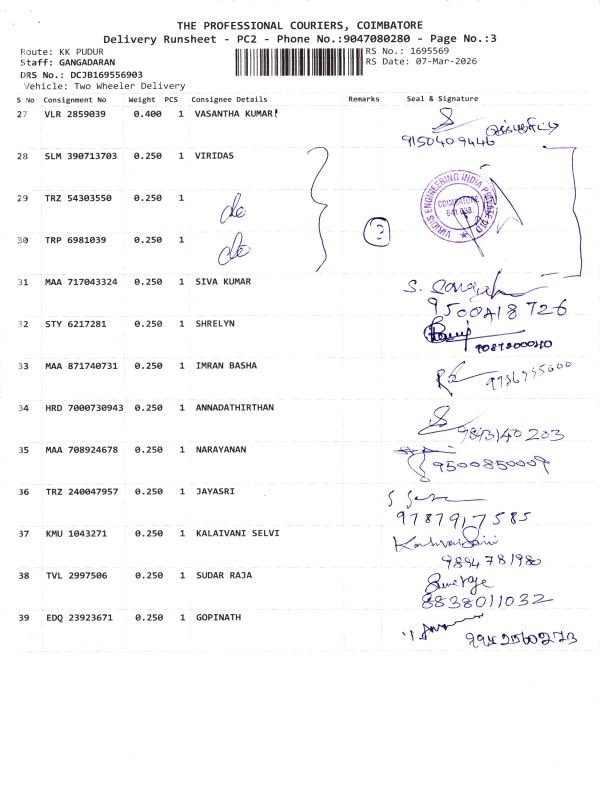 THE PROFESSIONAL COURIERS, COIMBATORE
Delivery Runsheet - PC2 - Phone No.:9047080280 - Page No.:3
Route: KK PUDUR
RS No.: 1695569
Staff: GANGADARAN
RS Date: 07-Mar-2026
DRS No.: DCJB169556903
Vehicle: Two Wheeler Delivery
S No Consignment No Weight PCS Consignee Details Remarks Seal & Signature
27 VLR 2859039 0.400 1 VASANTHA KUMARI
9150409446
28 SLM 390713703 0.250 1 VIRIDAS
29 TRZ 54303550 0.250 1 do
VIRIDIS ENGINEERING INDIA PRIVATE LTD
COIMBATORE
641 038.
30 TRP 6981039 0.250 1 do
3
31 MAA 717043324 0.250 1 SIVA KUMAR
9500418726
32 STY 6217281 0.250 1 SHRELYN
33 MAA 871740731 0.250 1 IMRAN BASHA
34 HRD 7000730943 0.250 1 ANNADATHIRTHAN
9843140203
35 MAA 708924678 0.250 1 NARAYANAN
9500850009
36 TRZ 240047957 0.250 1 JAYASRI
9787917585
37 KMU 1043271 0.250 1 KALAIVANI SELVI
9894781980
38 TVL 2997506 0.250 1 SUDAR RAJA
8838011032
39 EDQ 23923671 0.250 1 GOPINATH